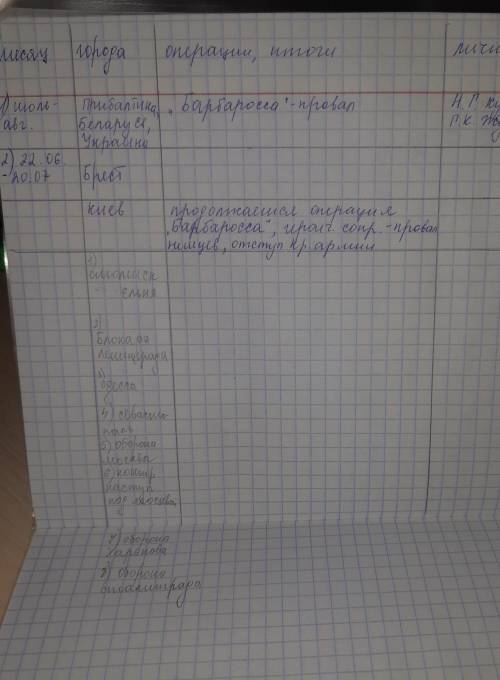 месяц города операции, итоги личн
1) июль- Прибалтика, „Барбаросса"-провал Н. Г. Ку
авг. Беларусь, Г. К. Жу
Украина
2) 22.06
-20.07 Брест
Киев продолжается операция
„Барбаросса", героич. сопр.-провал
немцев, отступ кр. армии
1)
Смоленск
Ельня
2)
Блокада
Ленинграда
3)
Одесса
4) севасто
поль
5) оборона
москвы
6) контр
наступ
под москвой
7) оборона
Харькова
8) оборона
Сталинграда